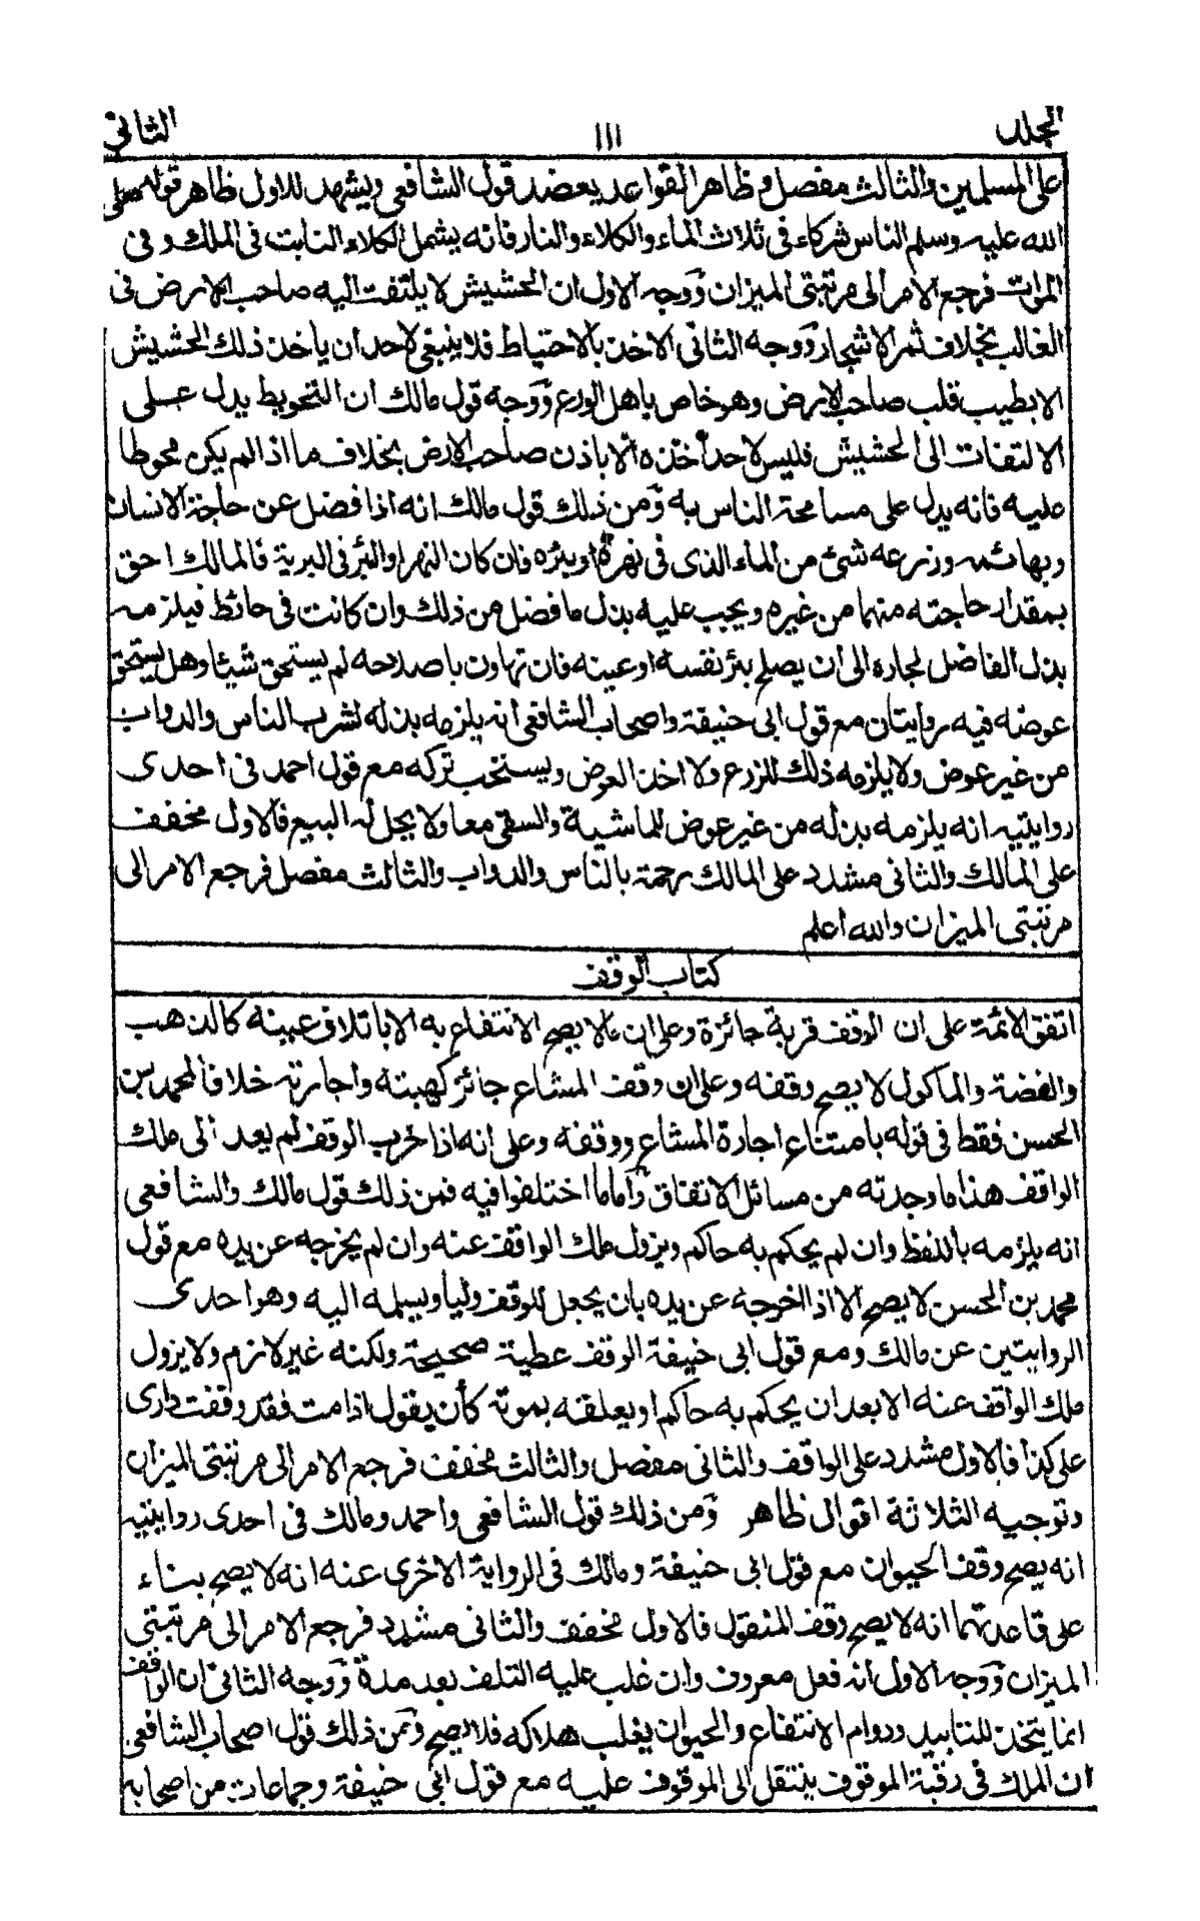 المجلد ١١١ الثاني
على المسلمين والثالث مفصل وظاهر القواعد يعضد قول الشافعي ويشهد للاول ظاهر قوله صلى
الله عليه وسلم الناس شركاء في ثلاث الماء والكلاء والنار فانه يشمل الكلاء النابت في الملك وفي
الموات فرجع الامر الى مرتبتي الميزان ووجه الاول ان الحشيش لا يلتفت اليه صاحب الارض في
الغالب بخلاف ثمر الاشجار ووجه الثاني الاخذ بالاحتياط فلا ينبغي لاحد ان ياخذ ذلك الحشيش
الا بطيب قلب صاحب الارض وهو خاص باهل الورع ووجه قول مالك ان التحويط يدل على
الالتفات الى الحشيش فليس لاحد أخذه الا باذن صاحب الارض بخلاف ما اذا لم يكن محوطا
عليه فانه يدل على مسامحة الناس به ومن ذلك قول مالك انه اذا فضل عن حاجة الانسان
وبهائمه وزرعه شئ من الماء الذي في نهره او بئره فان كان النهر او البئر في البرية فالمالك احق
بمقدار حاجته منهما من غيره ويجب عليه بذل ما فضل من ذلك وان كانت في حائط فيلزمه
بذل الفاضل لجاره الى ان يصلح بئر نفسه او عينه فان تهاون باصلاحه لم يستحق شيئا وهل يستحق
عوضه فيه روايتان مع قول ابي حنيفة واصحاب الشافعي انه يلزمه بذله لشرب الناس والدواب
من غير عوض ولا يلزمه ذلك للزرع ولا اخذ العوض ويستحب تركه مع قول احمد في احدى
روايتيه انه يلزمه بذله من غير عوض للماشية والسقي معا ولا يحل له البيع فالاول مخفف
على المالك والثاني مشدد على المالك رحمة بالناس والدواب والثالث مفصل فرجع الامر الى
مرتبتي الميزان والله اعلم
كتاب الوقف
اتفق الائمة على ان الوقف قربة جائزة وعلى ان مالا يصح الانتفاع به الا باتلاف عينه كالذهب
والفضة والماكول لا يصح وقفه وعلى ان وقف المشاع جائز كهبته واجارته خلافا لمحمد بن
الحسن فقط في قوله بامتناع اجارة المشاع ووقفه وعلى انه اذا خرب الوقف لم يعد الى ملك
الواقف هذا ما وجدته من مسائل الاتفاق وأما ما اختلفوا فيه فمن ذلك قول مالك والشافعي
انه يلزمه باللفظ وان لم يحكم به حاكم ويزول ملك الواقف عنه وان لم يخرجه عن يده مع قول
محمد بن الحسن لا يصح الا اذا اخرجه عن يده بان يجعل للوقف وليا ويسلمه اليه وهو احدى
الروايتين عن مالك ومع قول ابي حنيفة الوقف عطية صحيحة ولكنه غير لازم ولا يزول
ملك الواقف عنه الا بعد ان يحكم به حاكم او يعلقه بموته كأن يقول اذا مت فقد وقفت داري
على كذا فالاول مشدد على الواقف والثاني مفصل والثالث مخفف فرجع الامر الى مرتبتي الميزان
وتوجيه الثلاثة اقوال ظاهر ومن ذلك قول الشافعي واحمد ومالك في احدى روايتيه
انه يصح وقف الحيوان مع قول ابي حنيفة ومالك في الرواية الاخرى عنه انه لا يصح بناء
على قاعدتهما انه لا يصح وقف المنقول فالاول مخفف والثاني مشدد فرجع الامر الى مرتبتي
الميزان ووجه الاول انه فعل معروف وان غلب عليه التلف بعد مدة ووجه الثاني ان الوقف
انما يتخذ للتابيد ودوام الانتفاع والحيوان يغلب هلاكه فلا يصح ومن ذلك قول اصحاب الشافعي
ان الملك في رقبة الموقوف ينتقل الى الموقوف عليه مع قول ابي حنيفة وجماعات من اصحابه